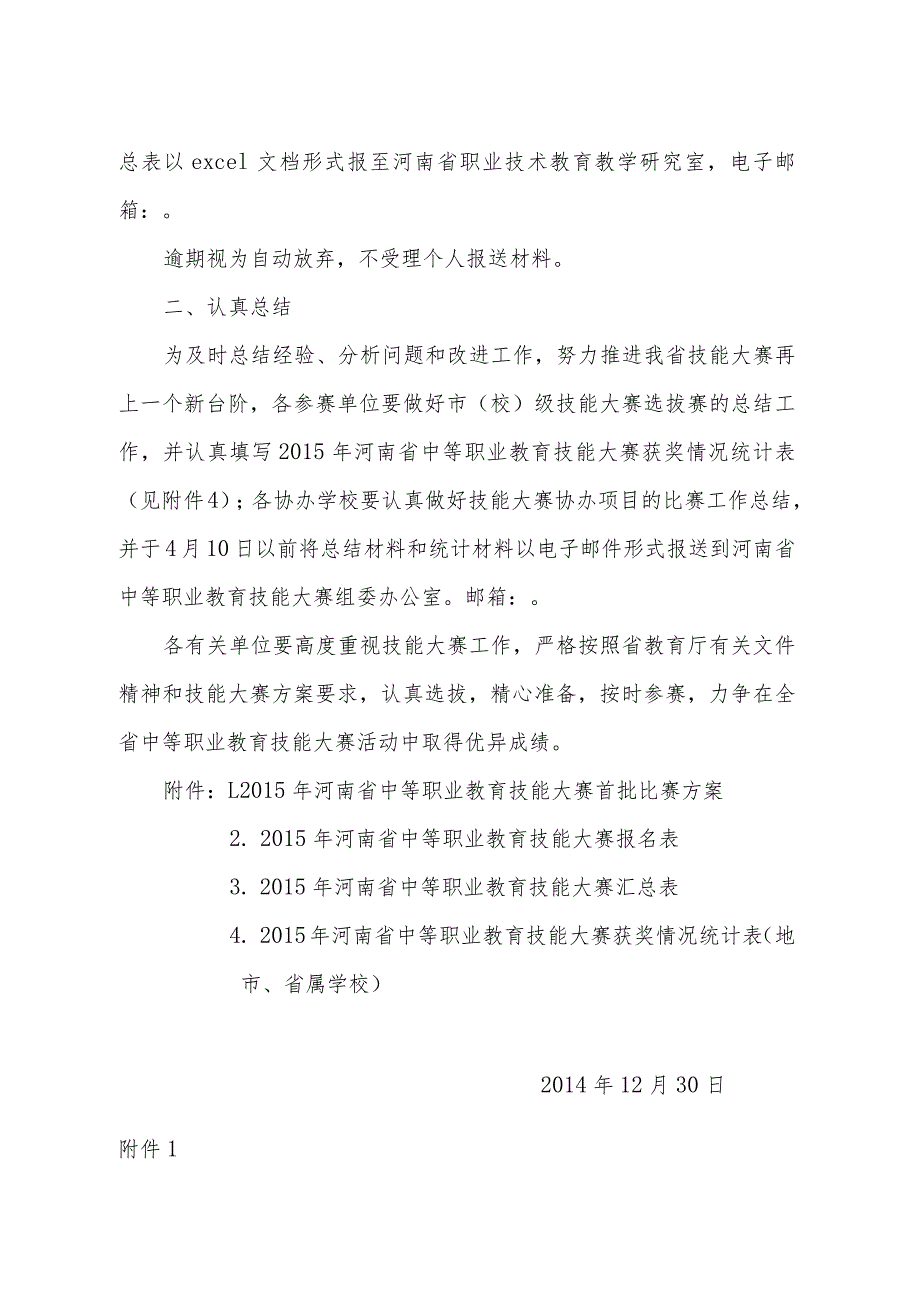 总表以 excel 文档形式报至河南省职业技术教育教学研究室，电子邮
箱：。
逾期视为自动放弃，不受理个人报送材料。
二、认真总结
为及时总结经验、分析问题和改进工作，努力推进我省技能大赛再
上一个新台阶，各参赛单位要做好市（校）级技能大赛选拔赛的总结工
作，并认真填写 2015 年河南省中等职业教育技能大赛获奖情况统计表
（见附件4）；各协办学校要认真做好技能大赛协办项目的比赛工作总结，
并于 4 月 10 日以前将总结材料和统计材料以电子邮件形式报送到河南省
中等职业教育技能大赛组委办公室。邮箱：。
各有关单位要高度重视技能大赛工作，严格按照省教育厅有关文件
精神和技能大赛方案要求，认真选拔，精心准备，按时参赛，力争在全
省中等职业教育技能大赛活动中取得优异成绩。
附件：L2015 年河南省中等职业教育技能大赛首批比赛方案
2. 2015 年河南省中等职业教育技能大赛报名表
3. 2015 年河南省中等职业教育技能大赛汇总表
4. 2015 年河南省中等职业教育技能大赛获奖情况统计表（地
市、省属学校）
2014 年 12 月 30 日
附件 1